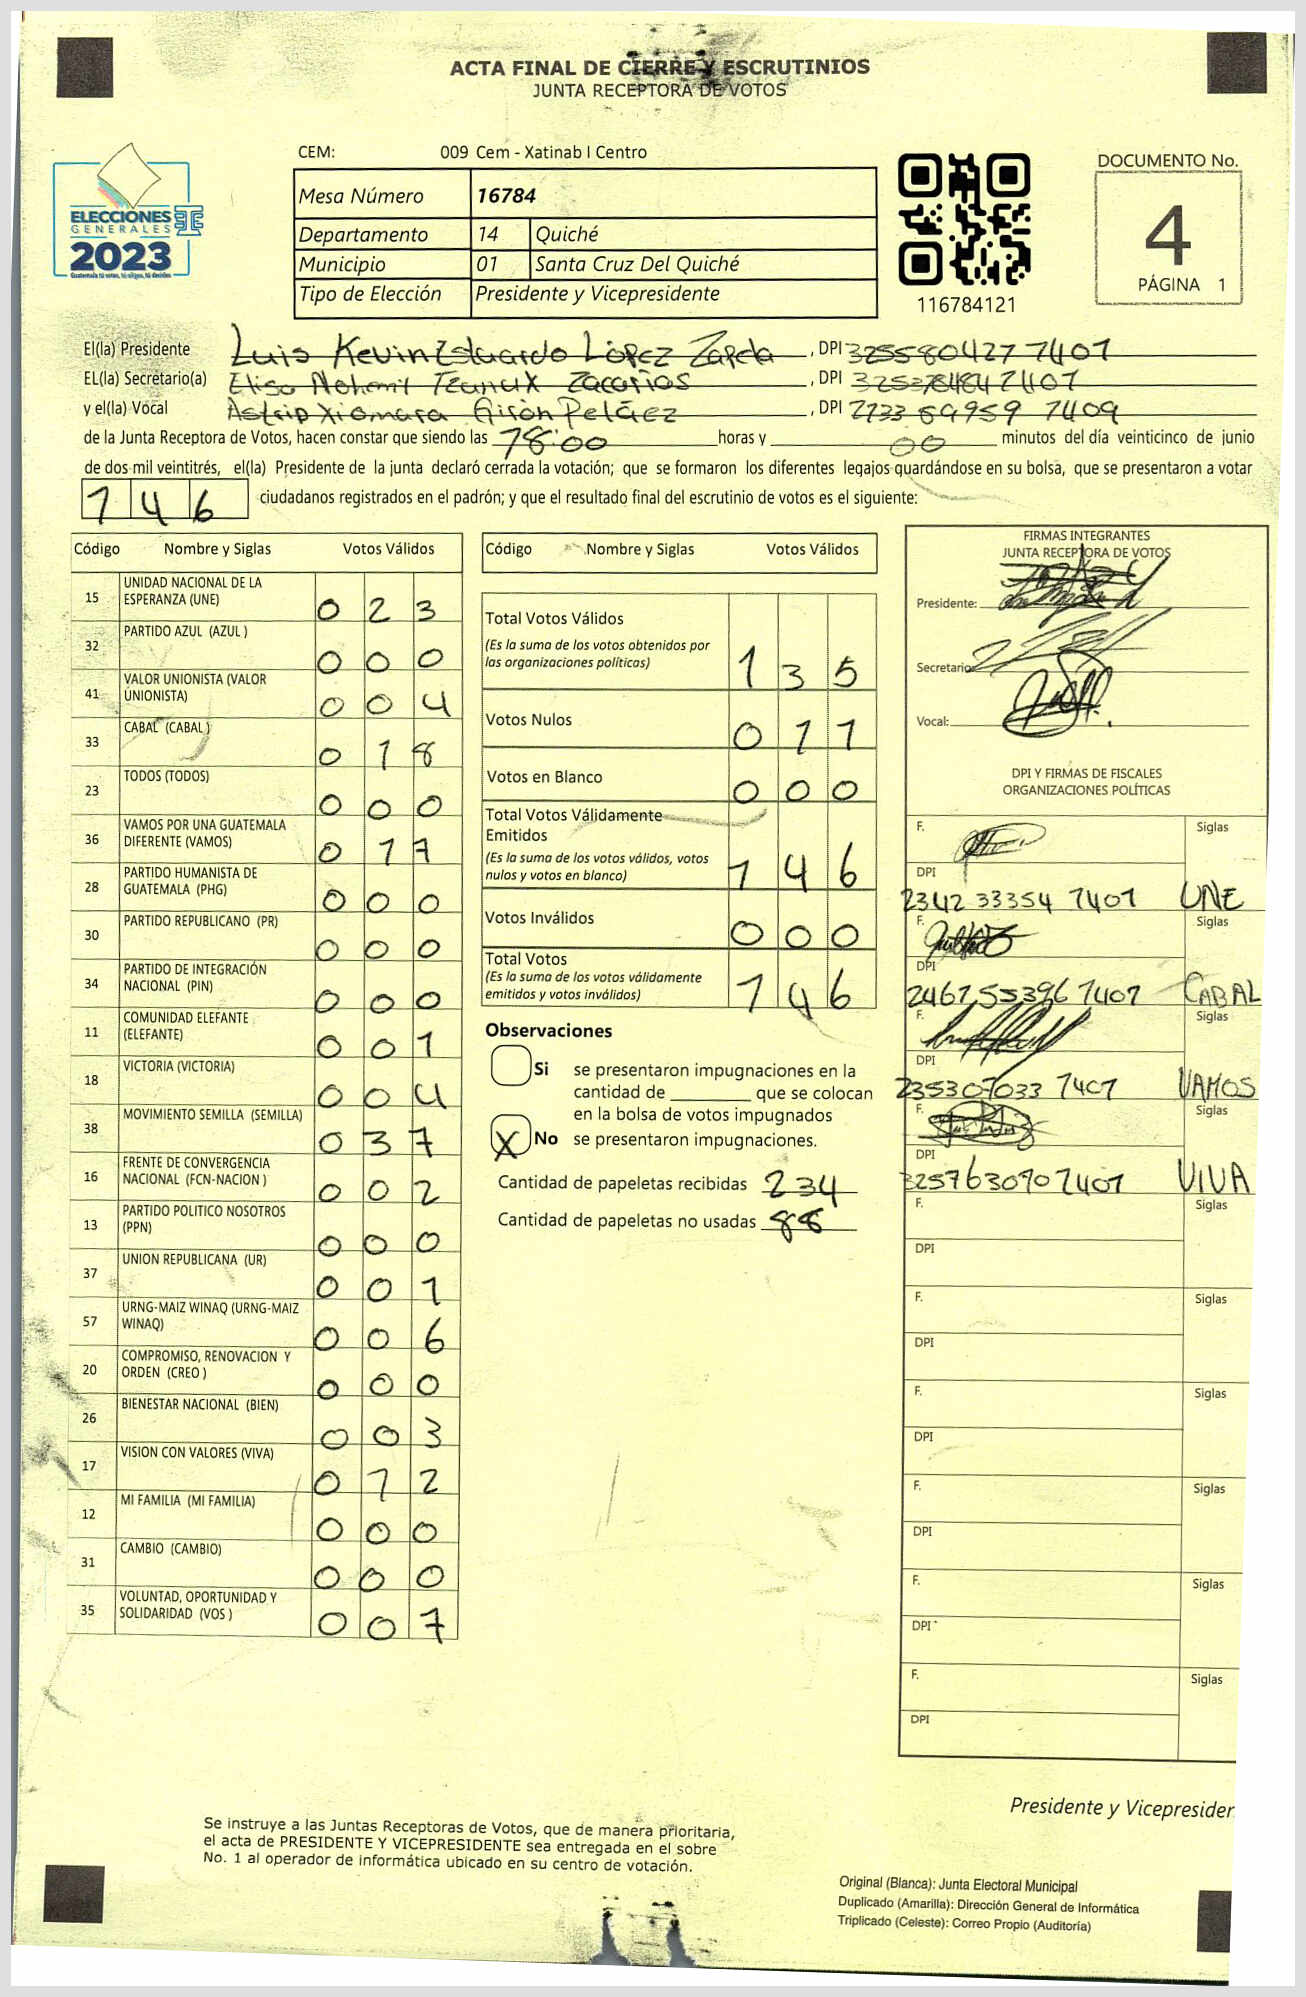 ACTA FINAL DE CIERRE Y ESCRUTINIOS
JUNTA RECEPTORA DE VOTOS
CEM: 009 Cem - Xatinab I Centro
DOCUMENTO No.
4
PÁGINA 1
ELECCIONES
GENERALES
2023
Guatemala tú votas, tú eliges, tú decides
Mesa Número 16784
Departamento 14 Quiché
Municipio 01 Santa Cruz Del Quiché
Tipo de Elección Presidente y Vicepresidente
116784121
El(la) Presidente Luis Kevin Estuardo López Zapeta , DPI 325580427 1401
EL(la) Secretario(a) Elisa Nohemy Zacarías , DPI
y el(la) Vocal Astrid Xiomara Girón Peláez , DPI 2733 89959 1409
de la Junta Receptora de Votos, hacen constar que siendo las 18:00 horas y 00 minutos del día veinticinco de junio
de dos mil veintitrés, el(la) Presidente de la junta declaró cerrada la votación; que se formaron los diferentes legajos guardándose en su bolsa, que se presentaron a votar
146 ciudadanos registrados en el padrón; y que el resultado final del escrutinio de votos es el siguiente:
Código Nombre y Siglas Votos Válidos
15 UNIDAD NACIONAL DE LA ESPERANZA (UNE) 023
32 PARTIDO AZUL (AZUL ) 000
41 VALOR UNIONISTA (VALOR UNIONISTA) 004
33 CABAL (CABAL ) 018
23 TODOS (TODOS) 000
36 VAMOS POR UNA GUATEMALA DIFERENTE (VAMOS) 017
28 PARTIDO HUMANISTA DE GUATEMALA (PHG) 000
30 PARTIDO REPUBLICANO (PR) 000
34 PARTIDO DE INTEGRACIÓN NACIONAL (PIN) 000
11 COMUNIDAD ELEFANTE (ELEFANTE) 001
18 VICTORIA (VICTORIA) 004
38 MOVIMIENTO SEMILLA (SEMILLA) 037
16 FRENTE DE CONVERGENCIA NACIONAL (FCN-NACION ) 002
13 PARTIDO POLITICO NOSOTROS (PPN) 000
37 UNION REPUBLICANA (UR) 001
57 URNG-MAIZ WINAQ (URNG-MAIZ WINAQ) 006
20 COMPROMISO, RENOVACION Y ORDEN (CREO ) 000
26 BIENESTAR NACIONAL (BIEN) 003
17 VISION CON VALORES (VIVA) 012
12 MI FAMILIA (MI FAMILIA) 000
31 CAMBIO (CAMBIO) 000
35 VOLUNTAD, OPORTUNIDAD Y SOLIDARIDAD (VOS ) 007
Código Nombre y Siglas Votos Válidos
Total Votos Válidos
(Es la suma de los votos obtenidos por
las organizaciones políticas) 135
Votos Nulos 011
Votos en Blanco 000
Total Votos Válidamente
Emitidos
(Es la suma de los votos válidos, votos
nulos y votos en blanco) 146
Votos Inválidos 000
Total Votos
(Es la suma de los votos válidamente
emitidos y votos inválidos) 146
Observaciones
Si se presentaron impugnaciones en la
cantidad de ________ que se colocan
en la bolsa de votos impugnados
X No se presentaron impugnaciones.
Cantidad de papeletas recibidas 234
Cantidad de papeletas no usadas 88
FIRMAS INTEGRANTES
JUNTA RECEPTORA DE VOTOS
Presidente:
Secretario:
Vocal:
DPI Y FIRMAS DE FISCALES
ORGANIZACIONES POLÍTICAS
F. Siglas
DPI
2342 33354 1401 UNE
F. Siglas
DPI
2467 55396 1401 CABAL
F. Siglas
DPI
235307033 1401 VAMOS
F. Siglas
DPI
325763090 1401 VIVA
F. Siglas
DPI
F. Siglas
DPI
F. Siglas
DPI
F. Siglas
DPI
F. Siglas
DPI
F. Siglas
DPI
Presidente y Vicepresiden
Se instruye a las Juntas Receptoras de Votos, que de manera prioritaria,
el acta de PRESIDENTE Y VICEPRESIDENTE sea entregada en el sobre
No. 1 al operador de informática ubicado en su centro de votación.
Original (Blanca): Junta Electoral Municipal
Duplicado (Amarilla): Dirección General de Informática
Triplicado (Celeste): Correo Propio (Auditoría)